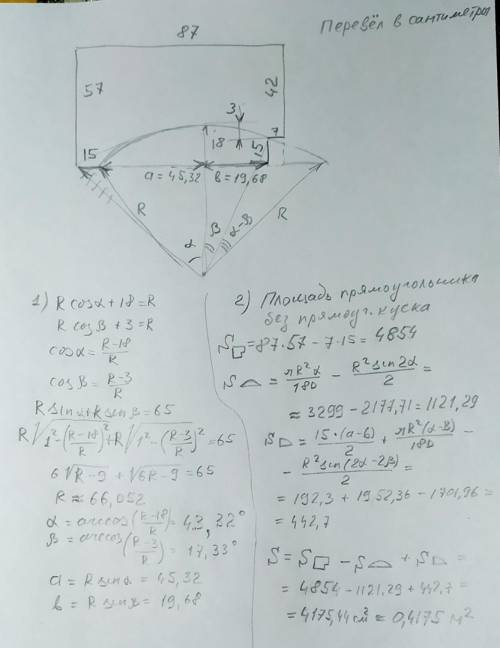 Перевёл в сантиметры
87
57
42
3
7
15
18
15
a = 45,32
в = 19,68
R
R
α
β
α-β
1) R cosα + 18 = R
R cosβ + 3 = R
cosα = (R-18)/R
cosβ = (R-3)/R
R sinα + R sinβ = 65
R√(1²-((R-18)/R)²) + R√(1²-((R-3)/R)²) = 65
6√(R-9) + √(6R-9) = 65
R ≈ 66,052
α = arccos((R-18)/R) = 43,32°
β = arccos((R-3)/R) = 17,33°
a = R sinα = 45,32
в = R sinβ = 19,68
2) Площадь прямоугольника
без прямоуг. куска
S = 87·57 - 7·15 = 4854
S = πR²α/180 - R² sin2α/2 =
≈ 3299 - 2177,71 = 1121,29
S = 15·(a-б)/2 + πR²(α-β)/180 -
- R² sin(2α-2β)/2 =
= 192,3 + 1952,36 - 1701,96 =
= 442,7
S = S - S + S =
= 4854 - 1121,29 + 442,7 =
= 4175,44 см² = 0,4175 м²